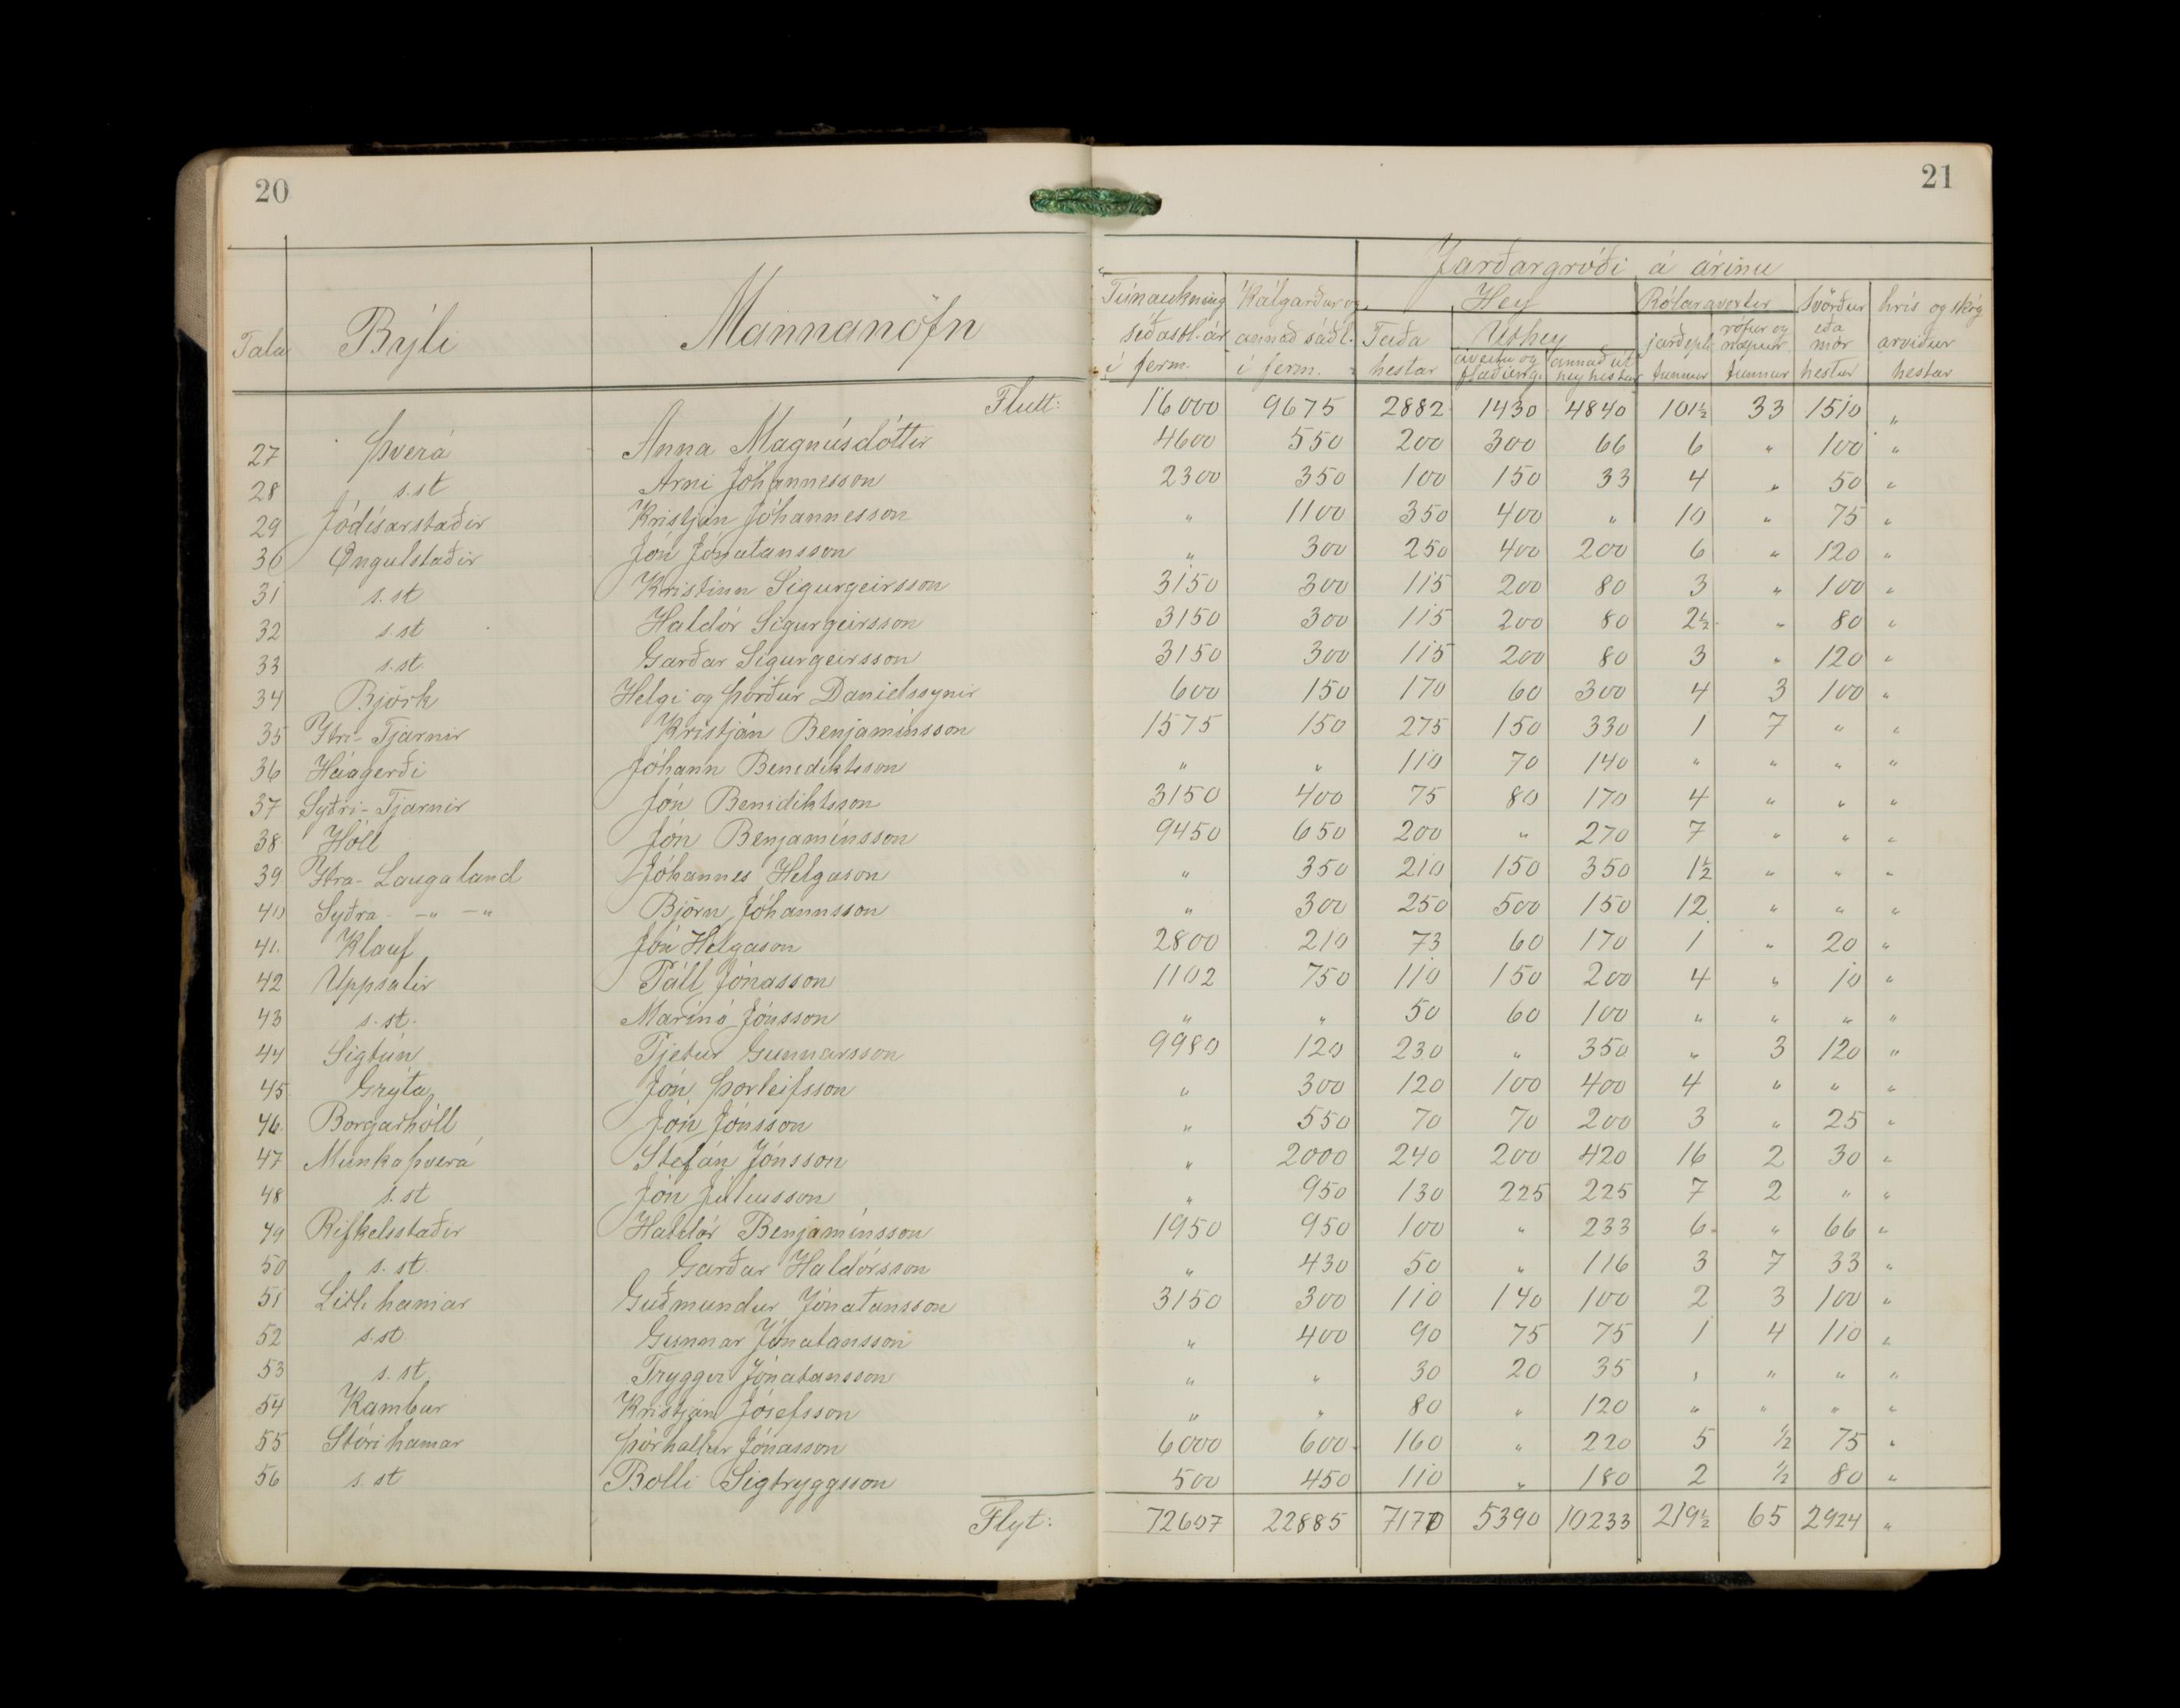 20
21
Jarðargróði á árinu
Túnaukning Kálgarður og Hey Rótaravextir Svörður hrís og skóg
Tala Býli Mannanöfn síðastl. ár annað sáðl. Taða Úthey jarðepli rófur og næpur eða mór arviður
í ferm. í ferm. hestar áveitu og flæðieng. annað út hey hestar tunnur tunnur hestar hestar
Flutt: 16000 9675 2882 1430 4840 101½ 33 1510 "
27 Þverá Anna Magnúsdóttir 4600 550 200 300 66 6 " 100 "
28 s.st Árni Jóhannesson 2300 350 100 150 33 4 " 50 "
29 Jódísarstaðir Kristján Jóhannesson " 1100 350 400 " 10 " 75 "
30 Öngulstaðir Jón Jónatansson " 300 250 400 200 6 " 120 "
31 s.st Kristinn Sigurgeirsson 3150 300 115 200 80 3 " 100 "
32 s.st Haldór Sigurgeirsson 3150 300 115 200 80 2½ " 80 "
33 s.st. Garðar Sigurgeirsson 3150 300 115 200 80 3 " 120 "
34 Björk Helgi og Þórður Daníelssynir 600 150 170 60 300 4 3 100 "
35 Ytri-Tjarnir Kristján Benjamínsson 1575 150 275 150 330 1 7 " "
36 Háagerði Jóhann Benediktsson " " 110 70 140 " " " "
37 Syðri-Tjarnir Jón Benidiktsson 3150 400 75 80 170 4 " " "
38 Hóll Jón Benjamínsson 9450 650 200 " 270 7 " " "
39 Ytra-Laugaland Jóhannes Helgason " 350 210 150 350 1½ " " "
40 Syðra -"-" Björn Jóhannsson " 300 250 500 150 12 " " "
41. Klauf Jón Helgason 2800 210 73 60 170 1 " 20 "
42 Uppsalir Páll Jónasson 1102 750 110 150 200 4 " 10 "
43 s.st. Marínó Jónsson " " 50 60 100 " " " "
44 Sigtún Pjetur Gunnarsson 9980 120 230 " 350 " 3 120 "
45 Grýta Jón Þorleifsson " 300 120 100 400 4 " " "
46. Borgarhóll Jón Jónsson " 550 70 70 200 3 " 25 "
47 Munkaþverá Stefán Jónsson " 2000 240 200 420 16 2 30 "
48 s.st Jón Júlíusson " 950 130 225 225 7 2 " "
49 Rifkelsstaðir Haldór Benjamínsson 1950 950 100 " 233 6 " 66 "
50 s.st. Garðar Haldórsson " 430 50 " 116 3 7 33 "
51 Litli hamar Guðmundur Jónatansson 3150 300 110 140 100 2 3 100 "
52 s.st Gunnar Jónatansson " 400 90 75 75 1 4 110 "
53 s.st. Tryggvi Jónatansson " " 30 20 35 " " " "
54 Kambur Kristján Jósefsson " " 80 " 120 " " " "
55 Stóri hamar Þórhallur Jónasson 6000 600 160 " 220 5 ½ 75 "
56 s.st Bolli Sigtryggsson 500 450 110 " 180 2 ½ 80 "
Flyt: 72607 22885 7170 5390 10233 219½ 65 2924 "